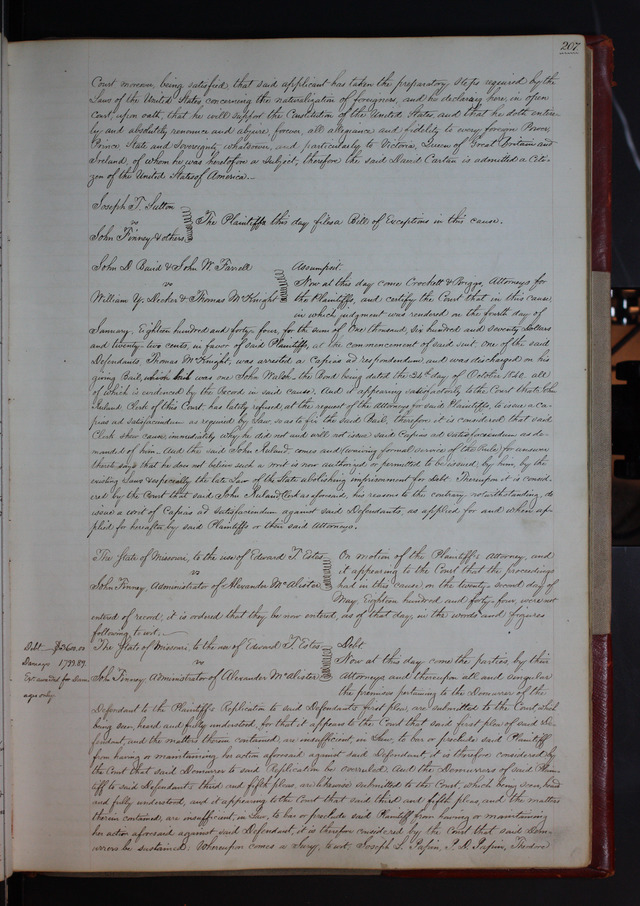 207
Court moreover, being satisfied that said applicant has taken the preparatory steps required by the
Laws of the United States concerning the naturalization of foreigners, and he declaring here in open
Court, upon oath, that he will support the Constitution of the United States, and that he doth entire-
ly and absolutely renounce and abjure forever, all allegiance and fidelity to every foreign Power,
Prince, State and Sovereignty whatsoever, and particularly to Victoria, Queen of Great Britain and
Ireland, of whom he was heretofore a Subject; therefore the said David Cartan is admitted a Citi-
zen of the United States of America.—
Joseph T. Sutton
vs
The Plaintiffs this day files a Bill of Exceptions in this cause.
John Finney & others
John D. Baird & John W. Farrell Assumpsit.
vs Now at this day come Crockett & Briggs, Attorneys for
William Y. Decker & Thomas McKnight the Plaintiffs, and certify the Court that in this cause,
in which judgment was rendered on the fourth day of
January, Eighteen hundred and forty four, for the sum of One thousand, six hundred and seventy dollars
and twenty-two cents, in favor of said Plaintiffs, at the commencement of said suit one of the said
Defendants, Thomas McKnight, was arrested a Capias ad respondendum, and was discharged on his
giving Bail, which bail was one John Walsh, the Bond being dated the 24th day of October 1842. all
of which is evidenced by the Record in said cause. And it appearing satisfactorily to the Court that John
Ruland Clerk of this Court has lately refused, at the request of the Attorneys for said Plaintiffs, to issue a Ca-
pias ad satisfaciendum as required by law so as to fix the said Bail, therefore, it is considered that said
Clerk show cause, immediately, why he did not and will not issue said Capias ad satisfaciendum as de-
manded of him. And the said John Ruland, comes and (waiving formal service of the Rule) for answer
thereto says that he does not believe such a writ is now authorized or permitted to be issued, by him, by the
existing Laws & especially the late Law of the State abolishing imprisonment for debt. Thereupon it is consid-
ered by the Court that said John Ruland, Clerk as aforesaid, his reasons to the contrary notwithstanding, do
issue a writ of Capias ad satisfaciendum against said Defendants, as applied for and when ap-
plied for hereafter by said Plaintiffs or their said Attorneys.
The State of Missouri, to the use of Edward T. Estes On motion of the Plaintiffs Attorney, and
vs it appearing to the Court that the proceedings
John Finney, Administrator of Alexander McAlister had in this cause on the twenty second day of
May Eighteen hundred and forty four were not
entered of record, it is ordered that they be now entered, as of that day, in the words and figures
following, to wit.—
Debt
Damages 1799.89.
Ex. awarded for Dam-
ages only
The State of Missouri, to the use of Edward T. Estes Debt
vs Now at this day come the parties by their
John Finney Administrator of Alexander McAlister Attorneys, and thereupon all and singular
the premises pertaining to the Demurrer of the
Defendant to the Plaintiffs Replication to said Defendants first plea, are submitted to the Court, which
being seen, heard and fully understood, for that it appears to the Court that said first plea of said De-
fendant, and the matters therein contained, are insufficient, in Law, to bar or preclude said Plaintiff
from having or maintaining her action aforesaid against said Defendant; it is therefore considered by
the Court that said Demurrer to said Replication be overruled. And the Demurrers of said Plain-
tiff to said Defendants third and fifth pleas, are likewise submitted to the Court, which being seen, heard
and fully understood, and it appearing to the Court that said third and fifth pleas, and the matters
therein contained, are insufficient, in Law, to bar or preclude said Plaintiff from having or maintaining
her action aforesaid against said Defendant, it is therefore considered by the Court that said Dem-
urrers be sustained. Whereupon comes a Jury, to wit, Joseph L. Papin, P. D. Papin, Theodore